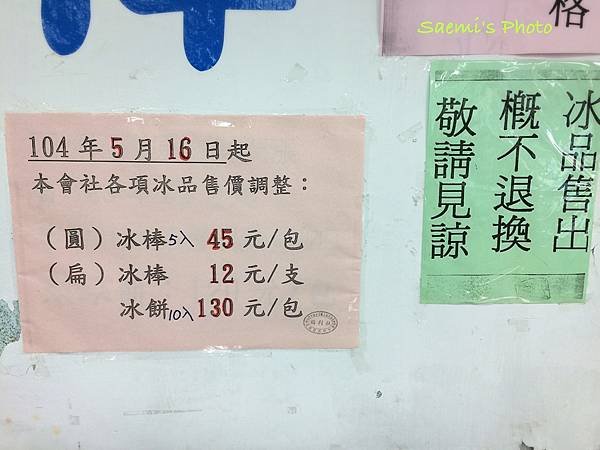 格
Saemi's Photo
104年5月16日起
本會社各項冰品售價調整：
（圓）冰棒5入 45元/包
（扁）冰棒 12元/支
冰餅10入130元/包
冰品售出
概不退換
敬請見諒